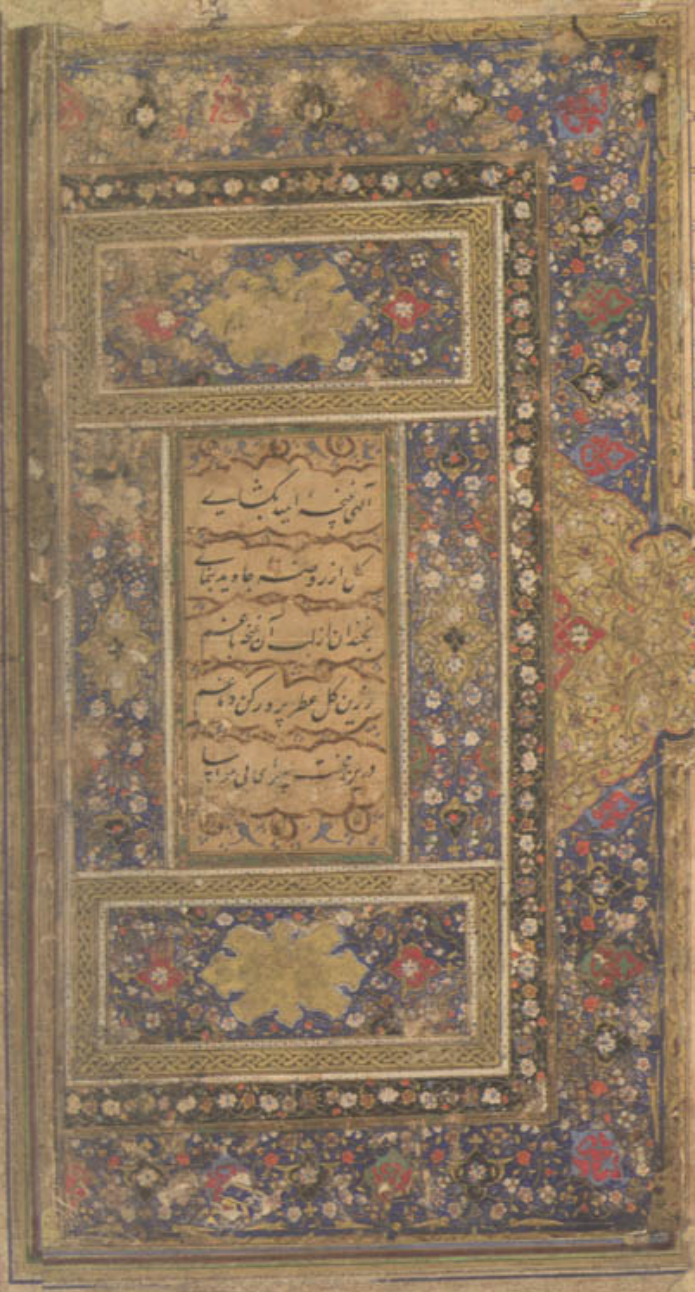 الهی غنچهٔ امید بکشای
کلی از روضهٔ جاوید بنمای
بخندان از لب آن غنچه باغم
وزین کل عطر پرور کن دماغم
درین محنت سرای بی مواسا